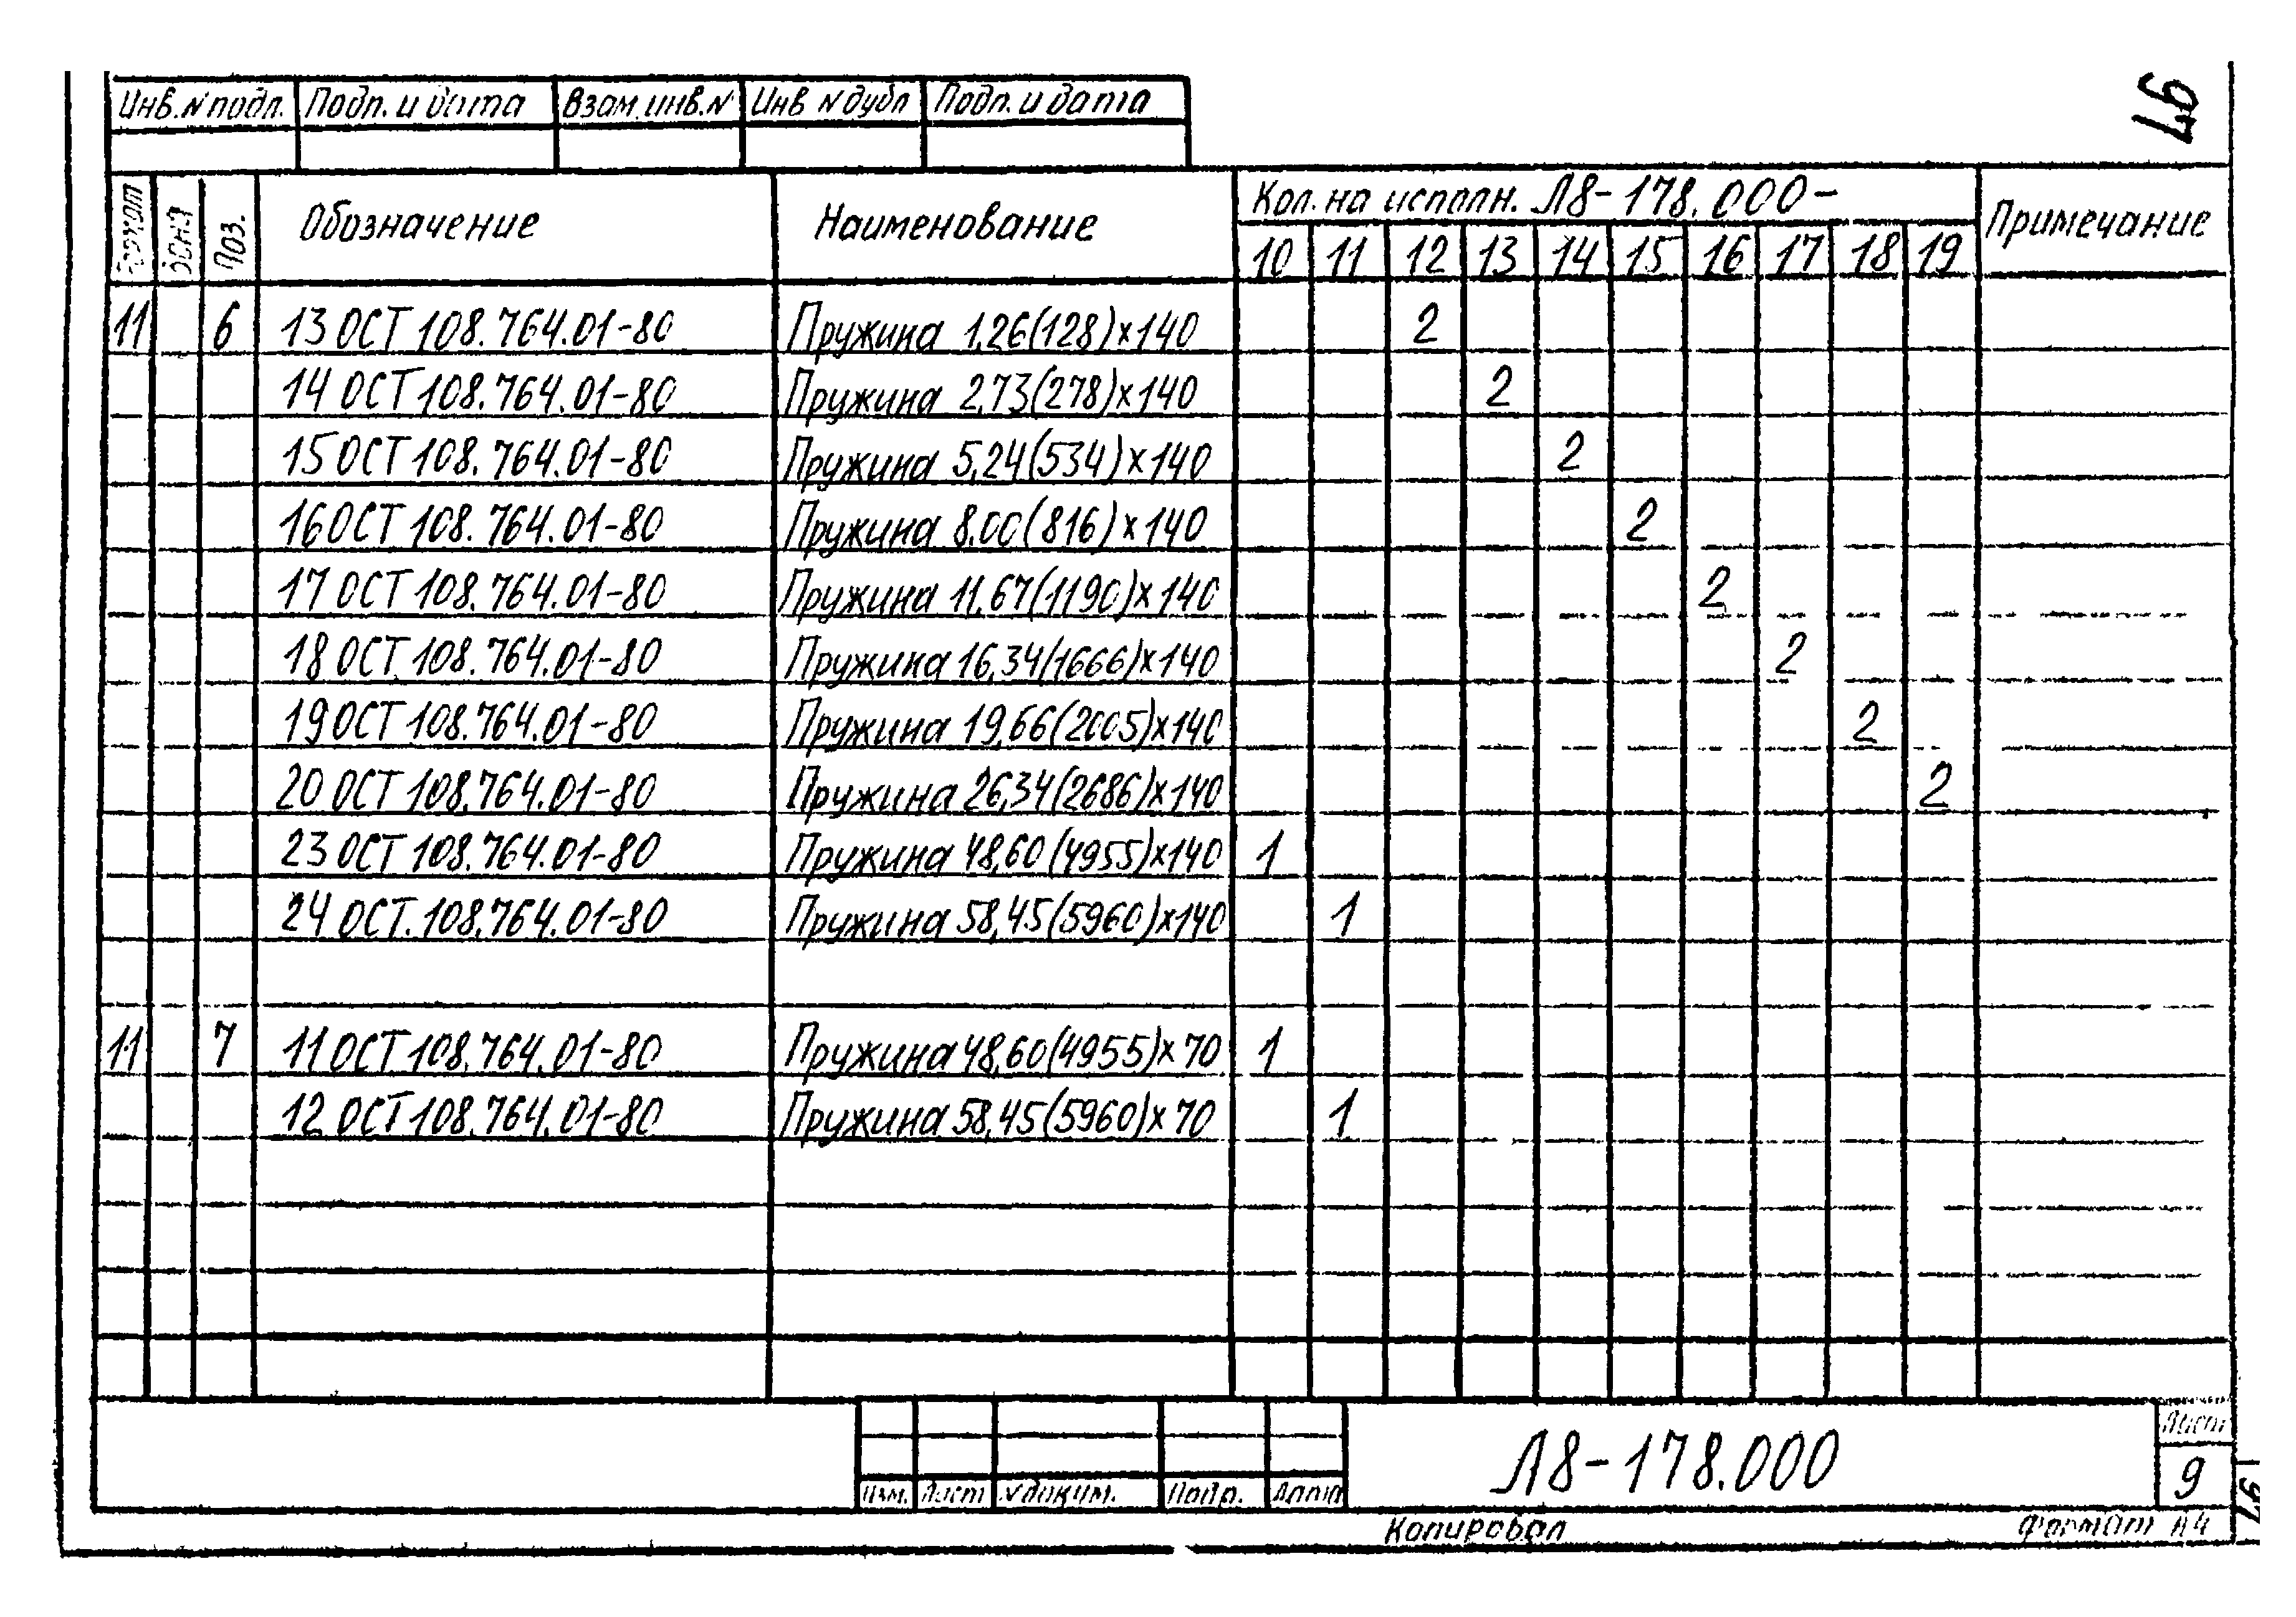 Инв.№ подл. Подп. и дата Взам.инв.№ Инв № дубл Подп. и дата
97
Формат Зона Поз. Обозначение Наименование Кол. на исполн. Л8-178.000- Примечание
10 11 12 13 14 15 16 17 18 19
11 6 13 ОСТ 108.764.01-80 Пружина 1,26(128)х140 2
14 ОСТ 108.764.01-80 Пружина 2,73(278)х140 2
15 ОСТ 108.764.01-80 Пружина 5,24(534)х140 2
16 ОСТ 108.764.01-80 Пружина 8.00(816)х140 2
17 ОСТ 108.764.01-80 Пружина 11,67(1190)х140 2
18 ОСТ 108.764.01-80 Пружина 16,34(1666)х140 2
19 ОСТ 108.764.01-80 Пружина 19,66(2005)х140 2
20 ОСТ 108.764.01-80 Пружина 26,34(2686)х140 2
23 ОСТ 108.764.01-80 Пружина 48,60(4955)х140 1
24 ОСТ.108.764.01-80 Пружина 58,45(5960)х140 1
11 7 11 ОСТ 108.764.01-80 Пружина 48,60(4955)х70 1
12 ОСТ 108.764.01-80 Пружина 58,45(5960)х70 1
Изм. Лист № докум. Подр. Дата
Л8-178.000
Лист
9
Копировал Формат А4
97